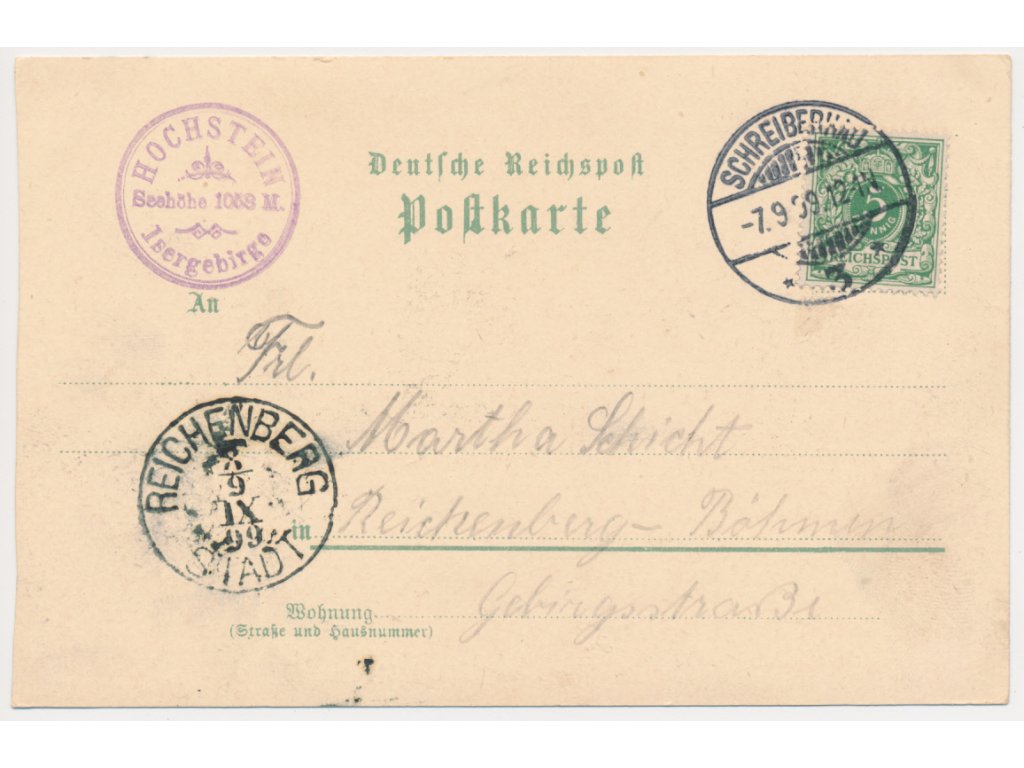 HOCHSTEIN
Seehöhe 1058 M.
Isergebirge
Deutsche Reichspost
Postkarte
SCHREIBERHAU
-7.9.99.12-1N
* 3 *
5
PFENNIG
REICHSPOST
An
Frl.
Martha Schicht
in Reichenberg-Böhmen
Gebirgsstraße
REICHENBERG
8/9
IX
99
STADT
Wohnung
(Straße und Hausnummer)